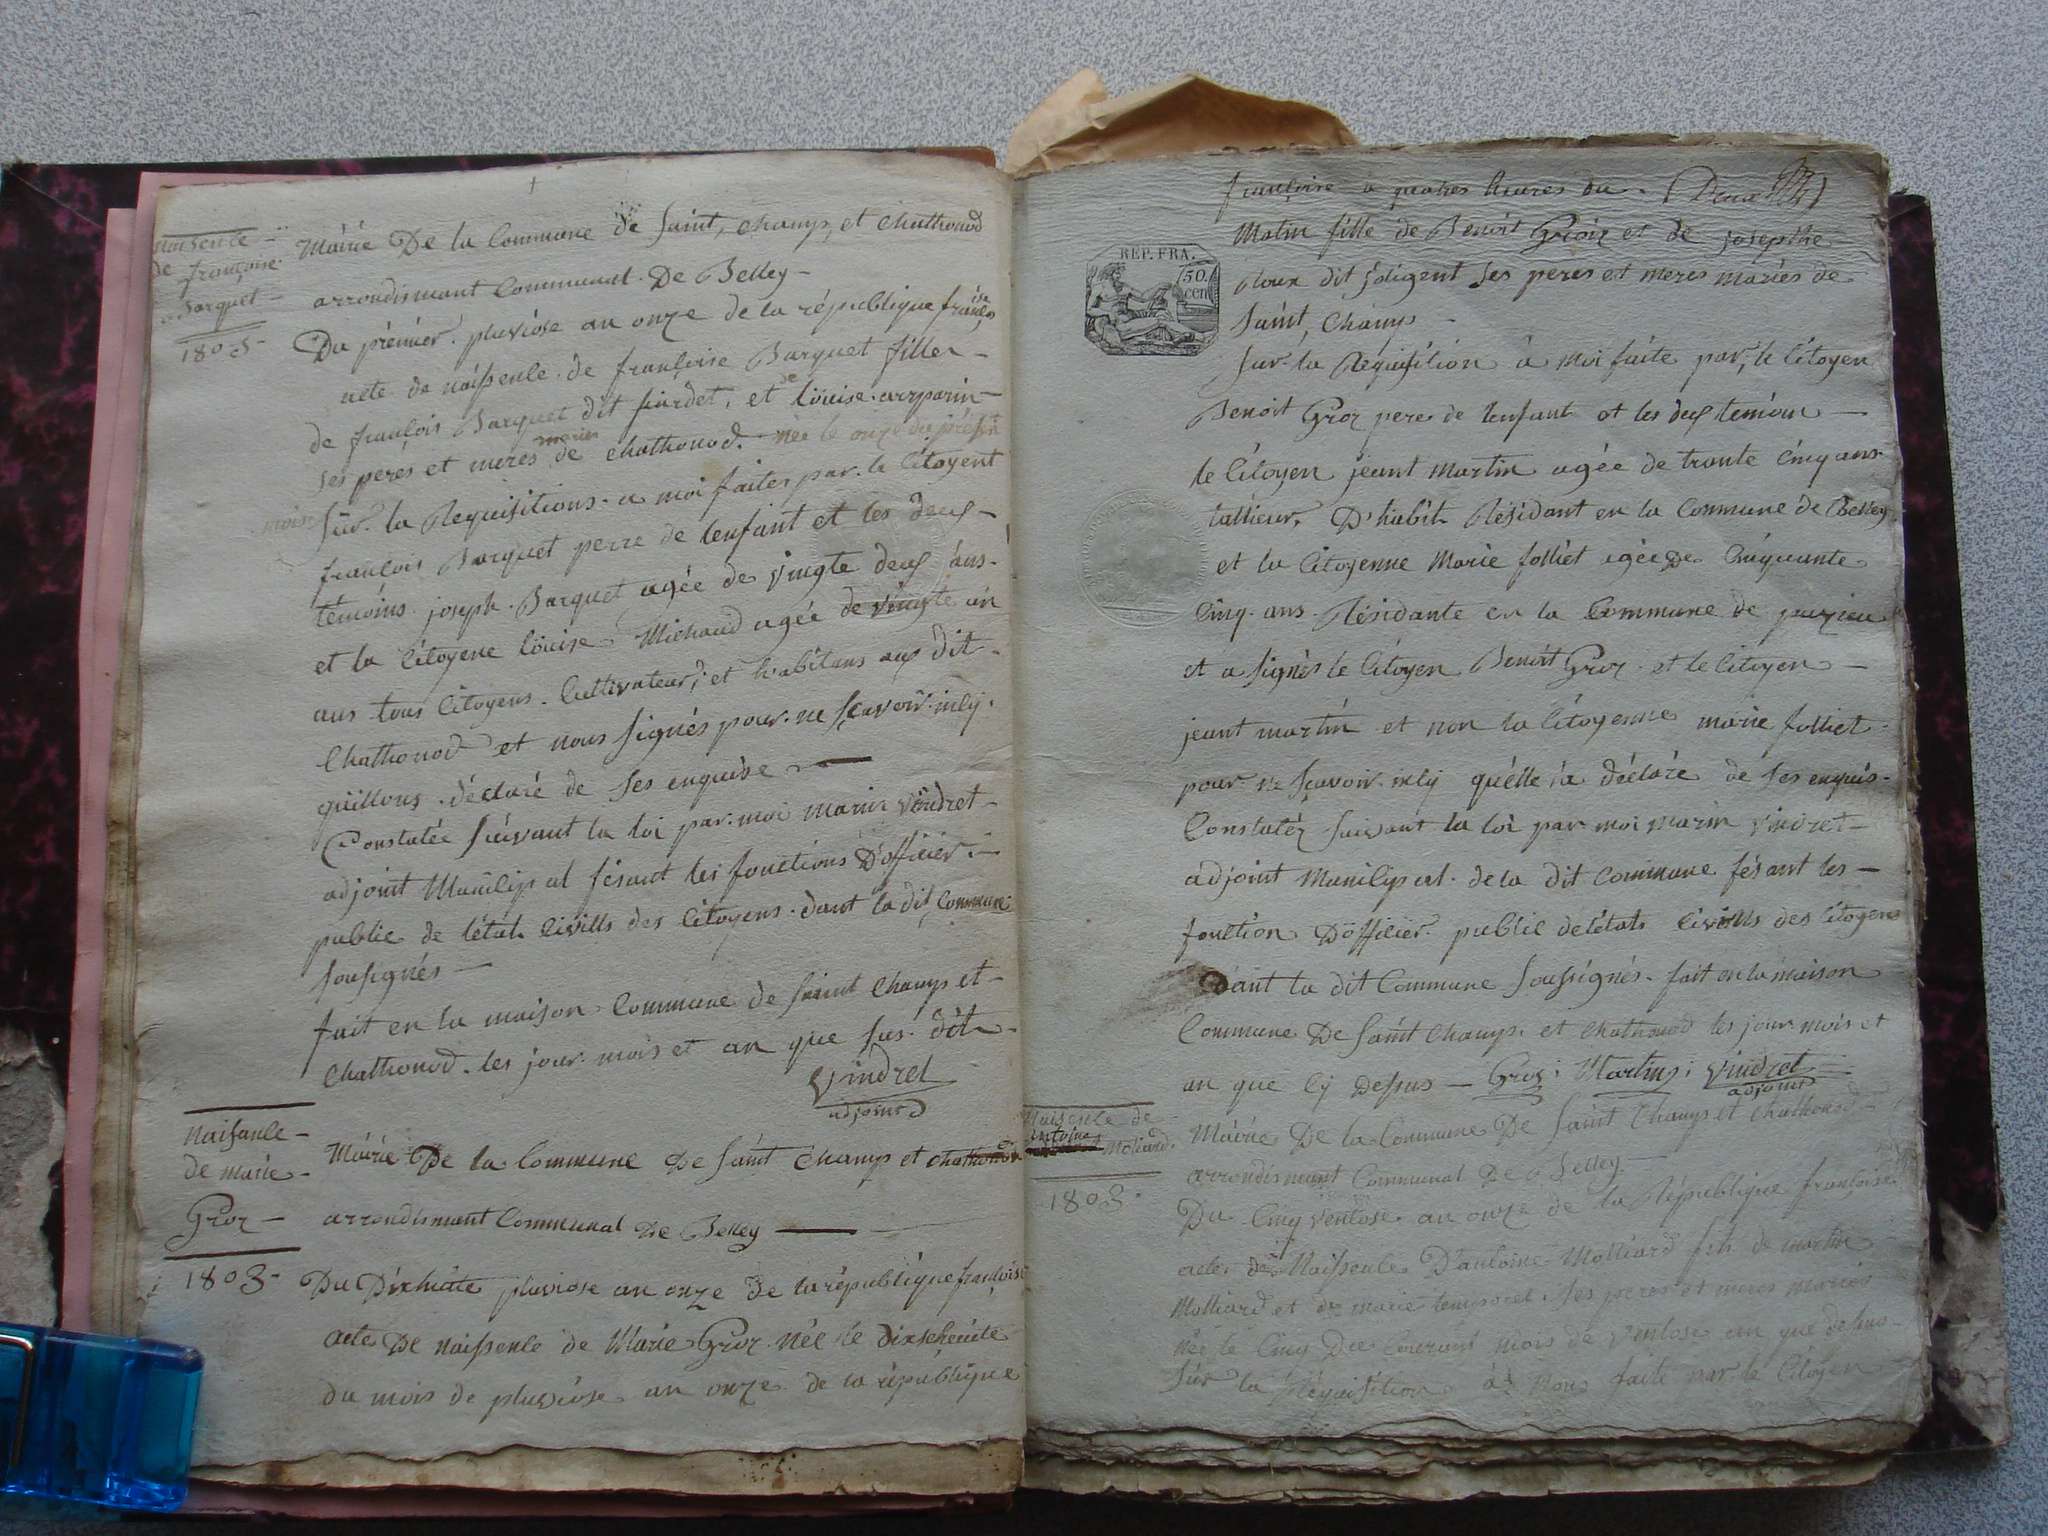 naissence
de françoise
Barquet
1803
Mairie De la Commune de saint, champ, et chathonod
arrondismant Communal De Belley
Du prémiér pluviose an onze de la république françoise
acte de naissence de françoise Barquet fille
de françois Barquet dit et de loüise
ses peres et meres mariés de chathonod. née le onze du présent
mois
sur la Requisitions a moi faites par le Citoyent
françois Barquet perre de lenfant et les deus
témoins joseph Barquet agée de vingte deus ans
et la Citoyene loüise Michaud agée de vingte un
ans tous Citoyens Cultivateur, et habitans aus dit
Chathonod et nous signés pour ne sçavoir
déclaré de ses enquise
Constatée suivant la loi par moi marin vindret
adjoint Municipal fésant les fonctions D'officier
public de létat Civills des Citoyens dant la dit Commune
sousignés
fait en la maison Commune de saint Champ et
Chathonod les jour mois et an que sus dit
Vindret
adjoint
Naisance
de marie
Groz
1803
Mairie De la Commune De saint Champ et chathonod
arrondismant Communal De Belley
Du Dixhuite pluviose an onze de la république françoise
acte De naissence de Marie Groz née le dixhuite
du mois de pluviose an onze de la république
françoise a quatres heures du Deux
Matin fille de Benoit Groz et de josepthe
Roux dit joligent ses peres et meres mariés de
saint, Champ
REP. FRA.
50.
cen
sur la Requisition à moi faite par, le Citoyen
Benoit Groz peres de lenfant et les deus temoin
le Citoyen jeant martin agée de trante Cinq ans
tallieur D'habit Résidant en la Commune de Belley
et la Citoyenne Marie folliet agée De Cinquante
Cinq ans Résidante en la Commune de
et a signés le Citoyen Benoit Groz et le Citoyen
jeant martin et non la Citoyenne marie folliet
pour ne sçavoir quélle la déclare de ses enquis
Constatéz suivant la loi par moi marin vindret
adjoint Municipal de la dit Commune fésant les
fonction D'officiér public de létats Civills des Citoyens
Dant la dit Commune soussignés fait en la maison
Commune De saint Champ et chathonod les jour mois et
an que Cy Dessus Groz Martin vindret
adjoint
Naisence de
antoine
Moliard
1803
Mairie De la Commune De saint Champ et chathonod
arrondismant Communal De Belley
Du Cinq ventose an onze de la République françoise
acte de Naissence D'antoine Molliard fils de martin
Molliard et de marie temporel ses peres et meres mariés
née le Cinq Du courant mois de ventose an que dessus
sur la Réquisition à Nous faite par le Citoyen